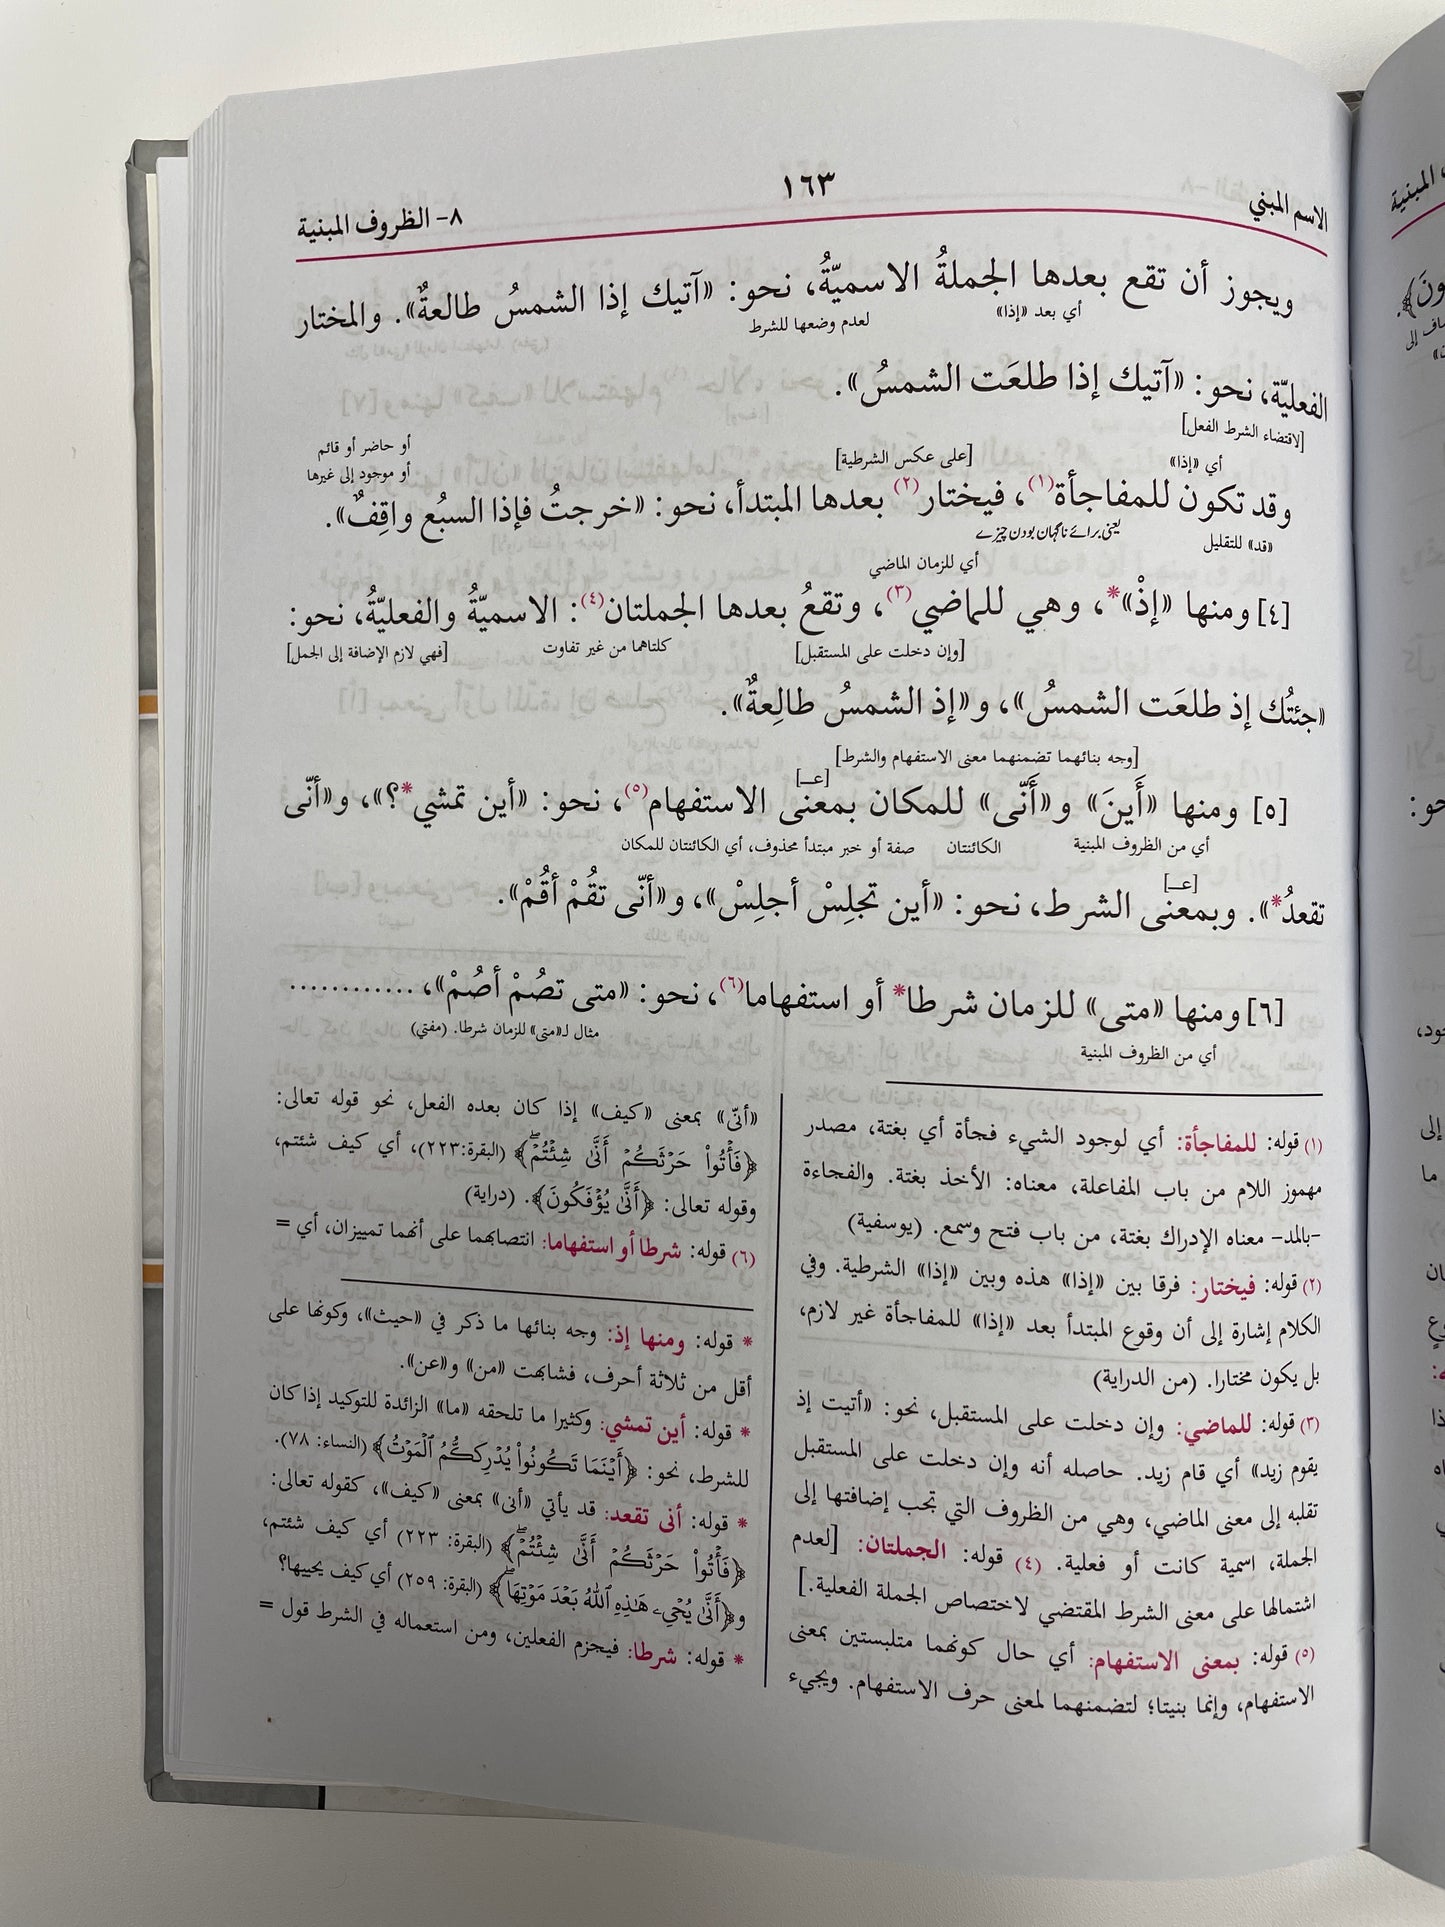 الاسم المبني
١٦٣
٨- الظروف المبنية
ويجوز أن تقع بعدها الجملةُ الاسميّةُ، نحو: «آتيك إذا الشمسُ طالعةٌ». والمختار
أي بعد «إذا» لعدم وضعها للشرط
الفعليّة، نحو: «آتيك إذا طلعَت الشمسُ».
[لاقتضاء الشرط الفعل]
أي «إذا» [على عكس الشرطية] أو حاضر أو قائم
أو موجود إلى غيرها
وقد تكون للمفاجأة(١)، فيختار(٢) بعدها المبتدأ، نحو: «خرجتُ فإذا السبُع واقِفٌ».
«قد» للتقليل یعنی برائے ناگہان بودن چیزے
أي للزمان الماضي
[٤] ومنها «إذْ»*، وهي للماضي(٣)، وتقعُ بعدها الجملتان(٤): الاسميّةُ والفعليّةُ، نحو:
[وإن دخلت على المستقبل] كلتاهما من غير تفاوت [فهي لازم الإضافة إلى الجمل]
«جئتُك إذ طلعَت الشمسُ»، و«إذ الشمسُ طالِعةٌ».
[وجه بنائهما تضمنهما معنى الاستفهام والشرط]
[عـ]
[٥] ومنها «أَينَ» و«أَنّى» للمكان بمعنى الاستفهام(٥)، نحو: «أين تمشي*؟»، و«أنّى
أي من الظروف المبنية الكائنتان صفة أو خبر مبتدأ محذوف، أي الكائنتان للمكان
[عـ]
تقعدُ*». وبمعنى الشرط، نحو: «أين تجلِسْ أجلِسْ»، و«أنّى تقُمْ أقُمْ».
[٦] ومنها «متى» للزمان شرطا* أو استفهاما(٦)، نحو: «متى تصُمْ أصُمْ»، ............
أي من الظروف المبنية مثال لـ«متى» للزمان شرطا. (مفتي)
(١) قوله: للمفاجأة: أي لوجود الشيء فجأة أي بغتة، مصدر
مهموز اللام من باب المفاعلة، معناه: الأخذ بغتة. والفجاءة
-بالمد- معناه الإدراك بغتة، من باب فتح وسمع. (يوسفية)
(٢) قوله: فيختار: فرقا بين «إذا» هذه وبين «إذا» الشرطية. وفي
الكلام إشارة إلى أن وقوع المبتدأ بعد «إذا» للمفاجأة غير لازم،
بل يكون مختارا. (من الدراية)
(٣) قوله: للماضي: وإن دخلت على المستقبل، نحو: «أتيت إذ
يقوم زيد» أي قام زيد. حاصله أنه وإن دخلت على المستقبل
تقلبه إلى معنى الماضي، وهي من الظروف التي تجب إضافتها إلى
الجملة، اسمية كانت أو فعلية. (٤) قوله: الجملتان: [لعدم
اشتمالها على معنى الشرط المقتضي لاختصاص الجملة الفعلية.]
(٥) قوله: بمعنى الاستفهام: أي حال كونهما متلبستين بمعنى
الاستفهام، وإنما بنيتا؛ لتضمنهما لمعنى حرف الاستفهام. ويجيء
«أنّى» بمعنى «كيف» إذا كان بعده الفعل، نحو قوله تعالى:
﴿فَأْتُوا۟ حَرْثَكُمْ أَنَّىٰ شِئْتُمْ ۖ﴾ (البقرة:٢٢٣)، أي كيف شئتم،
وقوله تعالى: ﴿أَنَّىٰ يُؤْفَكُونَ﴾. (دراية)
(٦) قوله: شرطا أو استفهاما: انتصابهما على أنهما تمييزان، أي =
* قوله: ومنها إذ: وجه بنائها ما ذكر في «حيث»، وكونها على
أقل من ثلاثة أحرف، فشابهت «من» و«عن».
* قوله: أين تمشي: وكثيرا ما تلحقه «ما» الزائدة للتوكيد إذا كان
للشرط، نحو: ﴿أَيْنَمَا تَكُونُوا۟ يُدْرِككُّمُ ٱلْمَوْتُ﴾ (النساء: ٧٨).
* قوله: أنى تقعد: قد يأتي «أنى» بمعنى «كيف»، كقوله تعالى:
﴿فَأْتُوا۟ حَرْثَكُمْ أَنَّىٰ شِئْتُمْ ۖ﴾ (البقرة: ٢٢٣) أي كيف شئتم،
و﴿أَنَّىٰ يُحْىِۦ هَـٰذِهِ ٱللَّهُ بَعْدَ مَوْتِهَا ۖ﴾ (البقرة: ٢٥٩) أي كيف يحييها؟
* قوله: شرطا: فيجزم الفعلين، ومن استعماله في الشرط قول =